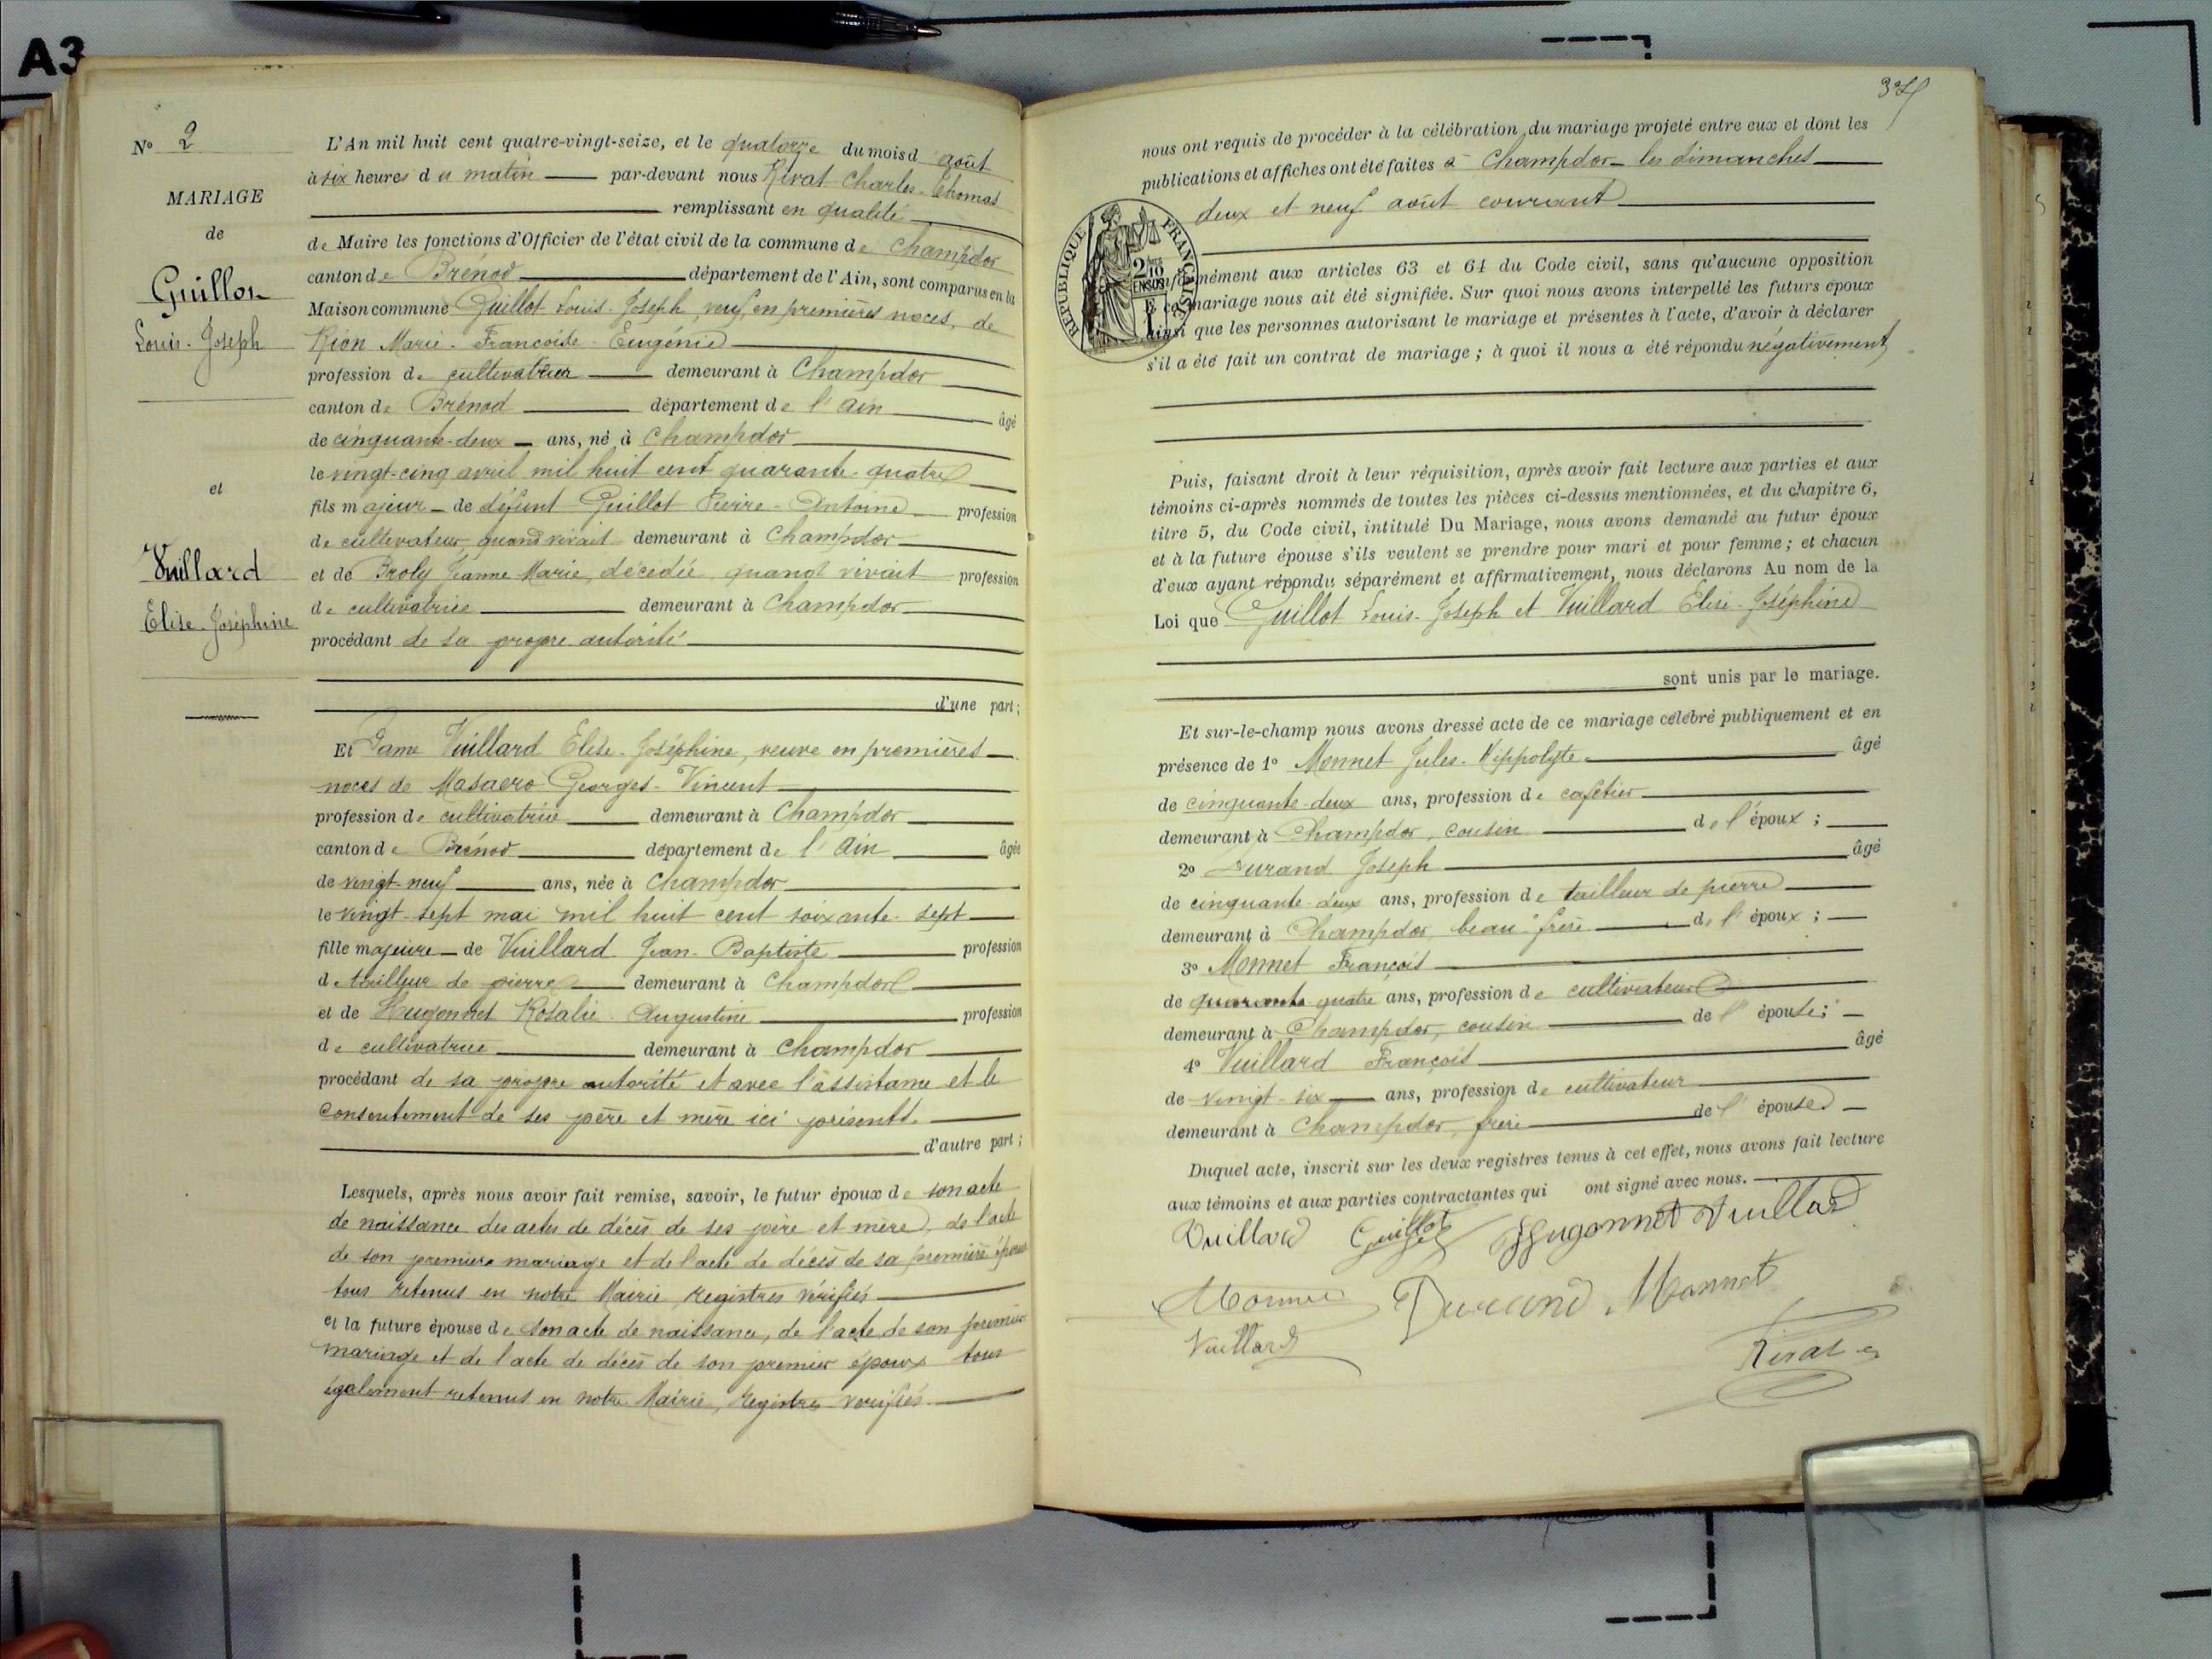 A3
N° 2
MARIAGE
de
Guillot
Louis-Joseph
et
Vuillard
Elise-Joséphine
L'An mil huit cent quatre-vingt-seize, et le quatorze du mois d'août
à six heures du matin par-devant nous Rivat Charles-Thomas
remplissant en qualité
de Maire les fonctions d'Officier de l'état civil de la commune de Champdor
canton de Brénod département de l'Ain, sont comparus en la
Maison commune Guillot Louis-Joseph, veuf en premières noces, de
Rion Marie-Françoise-Eugénie
profession de cultivateur demeurant à Champdor
canton de Brénod département de l'Ain âgé
de cinquante-deux ans, né à Champdor
le vingt-cinq avril mil huit cent quarante-quatre
fils majeur de défunt Guillot Pierre-Antoine profession
de cultivateur, quand vivait demeurant à Champdor
et de Broly Jeanne Marie, décédée, quand vivait profession
de cultivatrice demeurant à Champdor
procédant de sa propre autorité
d'une part;
Et Dame Vuillard Elise-Joséphine, veuve en premières
noces de Masaero Georges-Vincent
profession de cultivatrice demeurant à Champdor
canton de Brénod département de l'Ain âgée
de vingt-neuf ans, née à Champdor
le vingt-sept mai mil huit cent soixante-sept
fille majeure de Vuillard Jean-Baptiste profession
de tailleur de pierre demeurant à Champdor
et de Hugonnet Rosalie Augustine profession
de cultivatrice demeurant à Champdor
procédant de sa propre autorité et avec l'assistance et le
consentement de ses père et mère ici présents.
d'autre part;
Lesquels, après nous avoir fait remise, savoir, le futur époux de son acte
de naissance des actes de décès de ses père et mère, de l'acte
de son premier mariage et de l'acte de décès de sa première épouse
tous retenus en notre Mairie, registres vérifiés
et la future épouse de son acte de naissance, de l'acte de son premier
mariage et de l'acte de décès de son premier époux tous
également retenus en notre Mairie, registres vérifiés.
nous ont requis de procéder à la célébration du mariage projeté entre eux et dont les
publications et affiches ont été faites à Champdor les dimanches
deux et neuf août courant
RÉPUBLIQUE FRANÇAISE
2/10
EN SUS
nformément aux articles 63 et 64 du Code civil, sans qu'aucune opposition
mariage nous ait été signifiée. Sur quoi nous avons interpellé les futurs époux
ainsi que les personnes autorisant le mariage et présentes à l'acte, d'avoir à déclarer
s'il a été fait un contrat de mariage; à quoi il nous a été répondu négativement,
Puis, faisant droit à leur réquisition, après avoir fait lecture aux parties et aux
témoins ci-après nommés de toutes les pièces ci-dessus mentionnées, et du chapitre 6,
titre 5, du Code civil, intitulé Du Mariage, nous avons demandé au futur époux
et à la future épouse s'ils veulent se prendre pour mari et pour femme; et chacun
d'eux ayant répondu séparément et affirmativement, nous déclarons Au nom de la
Loi que Guillot Louis-Joseph et Vuillard Elise-Joséphine
sont unis par le mariage.
Et sur-le-champ nous avons dressé acte de ce mariage célébré publiquement et en
présence de 1° Monnet Jules-Hippolyte âgé
de cinquante-deux ans, profession de cafetier
demeurant à Champdor, cousin de l'époux;
2° Durand Joseph âgé
de cinquante-deux ans, profession de tailleur de pierre
demeurant à Champdor, beau-frère de l'époux;
3° Monnet François
de quarante quatre ans, profession de cultivateur
demeurant à Champdor, cousin de l'épouse;
4° Vuillard François âgé
de vingt-six ans, profession de cultivateur
demeurant à Champdor, frère de l'épouse
Duquel acte, inscrit sur les deux registres tenus à cet effet, nous avons fait lecture
aux témoins et aux parties contractantes qui ont signé avec nous.
Vuillard Guillot Hugonnet Vuillard
Monnet Durand Monnet
Vuillard Rivat